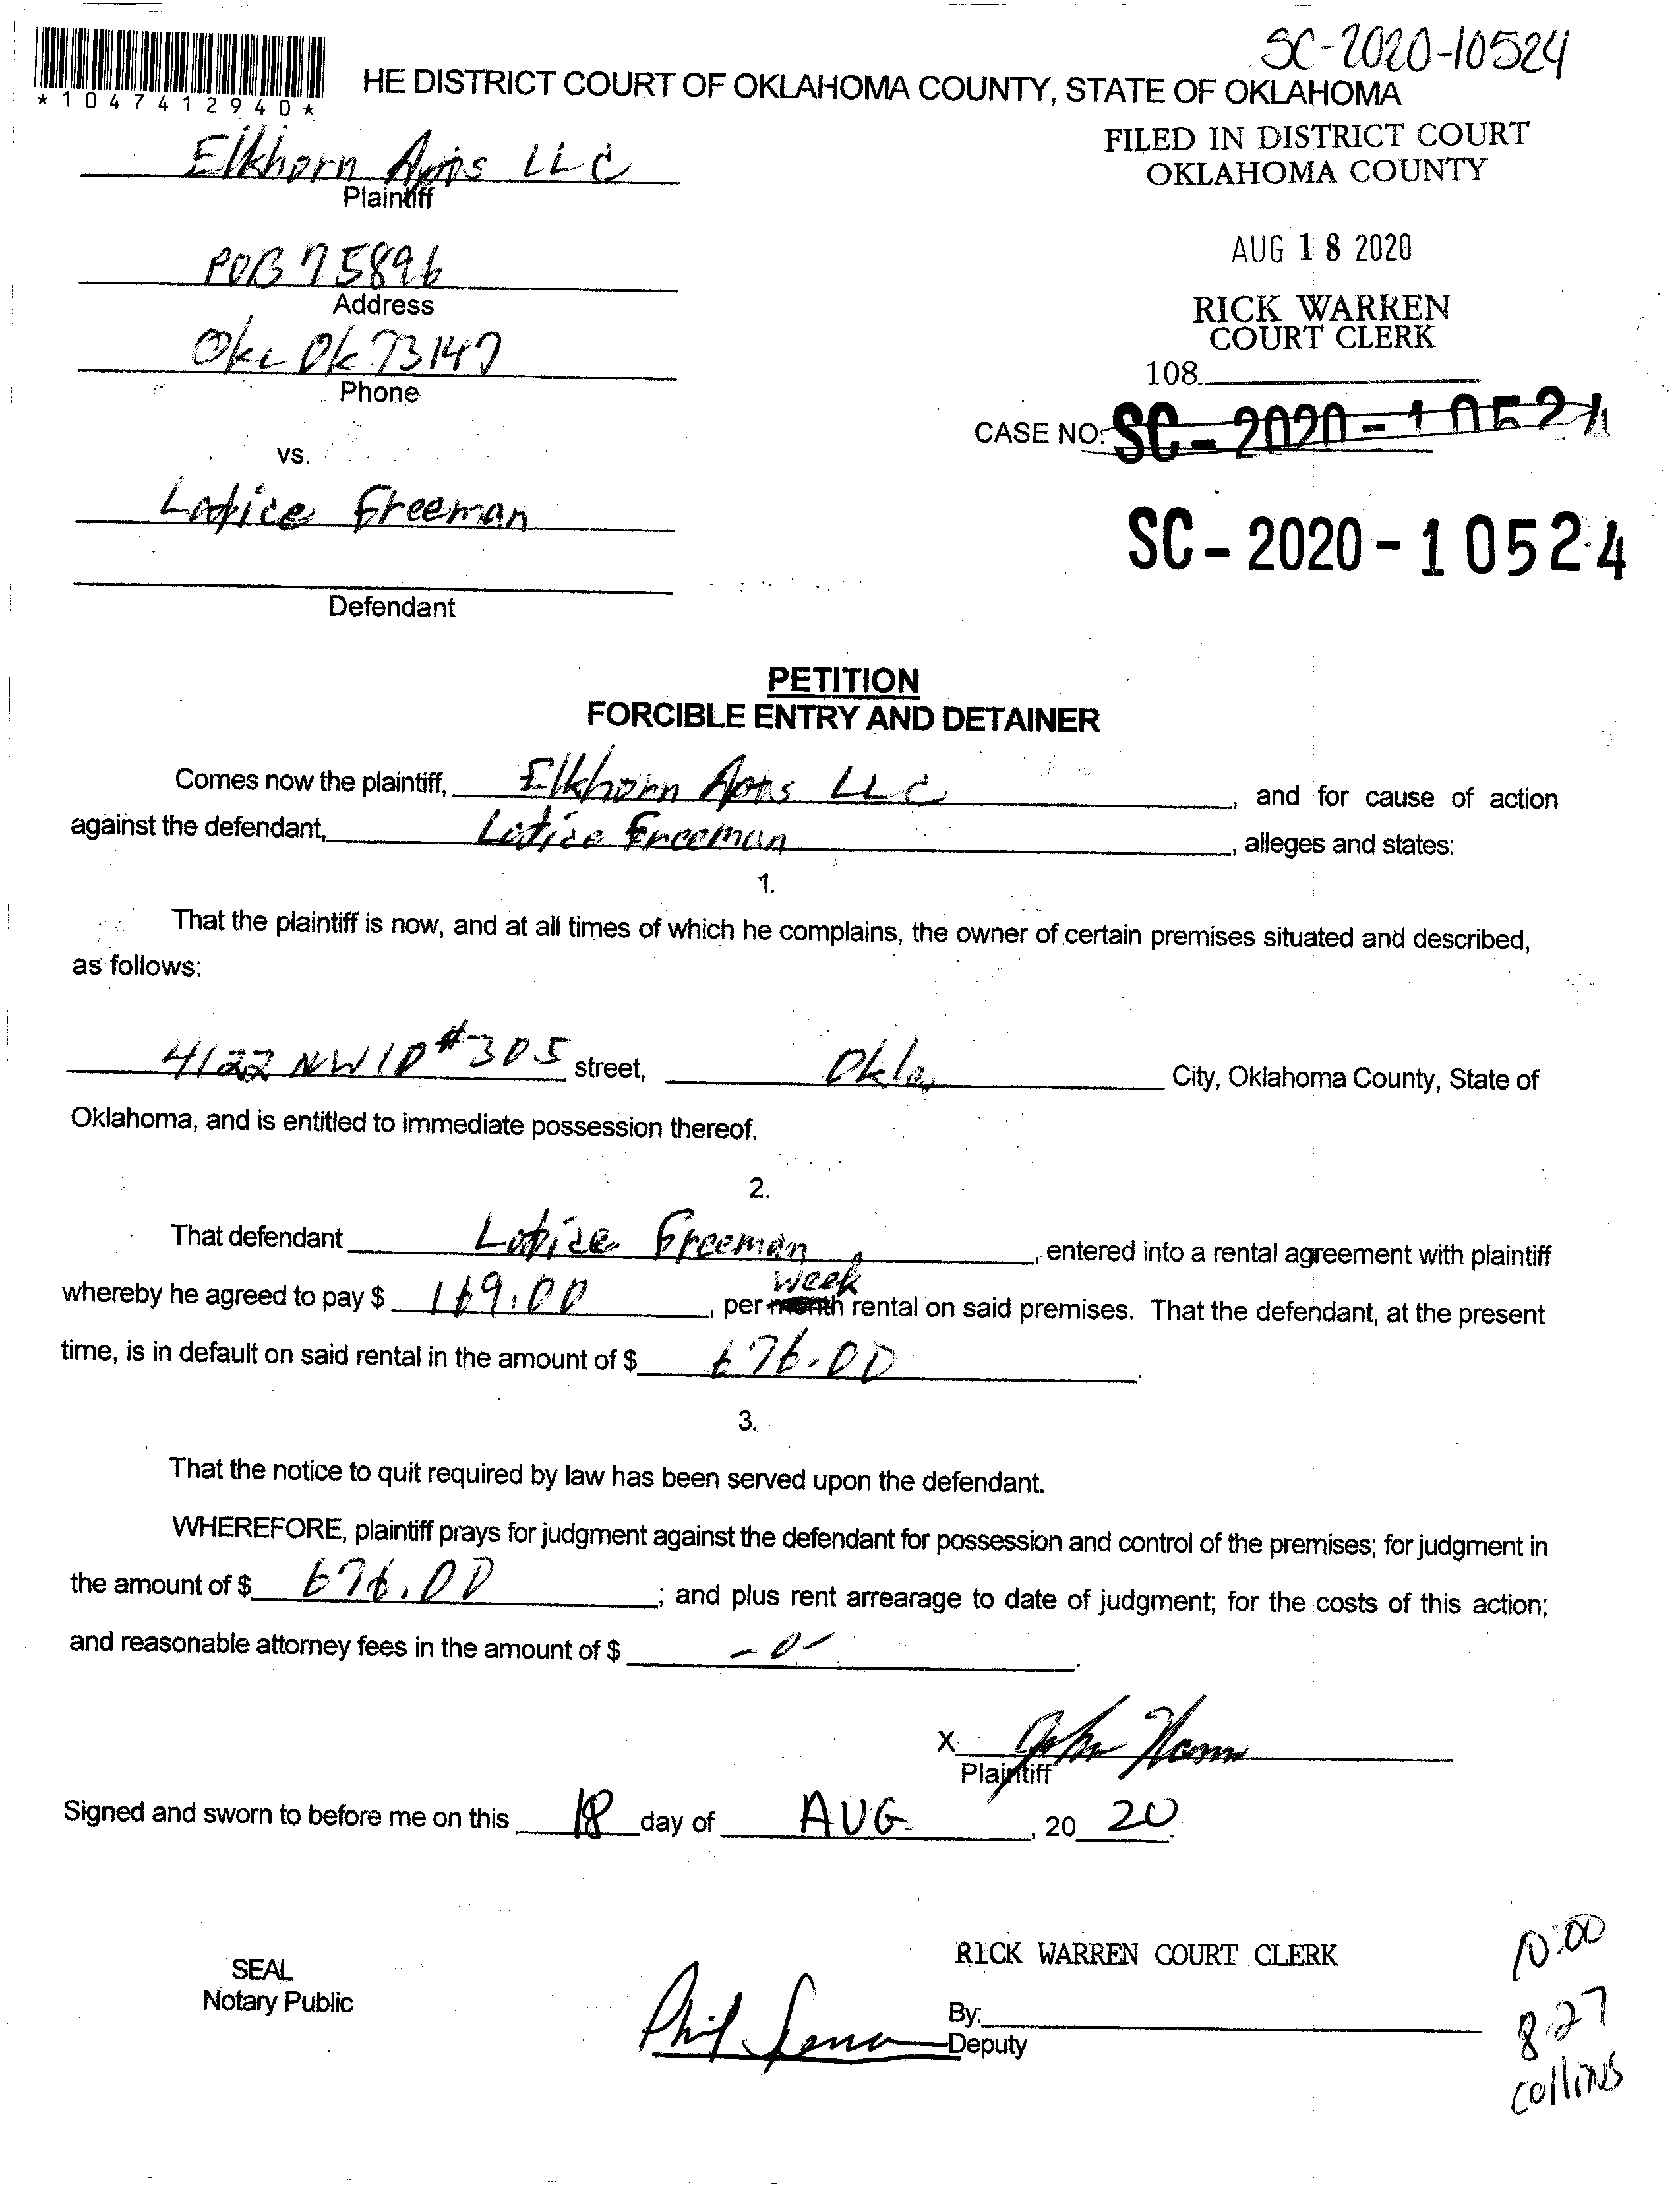 SC-2020-10524
*1047412940*
HE DISTRICT COURT OF OKLAHOMA COUNTY, STATE OF OKLAHOMA
FILED IN DISTRICT COURT
OKLAHOMA COUNTY
Elkhorn Apts LLC
Plaintiff
AUG 18 2020
POB 75896
Address
RICK WARREN
COURT CLERK
Okc Ok 73147
Phone
108
CASE NO. SC-2020-10524
vs.
Latice Freeman
SC-2020-10524
Defendant
PETITION
FORCIBLE ENTRY AND DETAINER
Comes now the plaintiff, Elkhorn Apts LLC, and for cause of action
against the defendant, Latice Freeman, alleges and states:
1.
That the plaintiff is now, and at all times of which he complains, the owner of certain premises situated and described,
as follows:
4122 NW 10 #305 street, Okla, City, Oklahoma County, State of
Oklahoma, and is entitled to immediate possession thereof.
2.
That defendant Latice Freeman, entered into a rental agreement with plaintiff
week
whereby he agreed to pay $ 169.00, per month rental on said premises. That the defendant, at the present
time, is in default on said rental in the amount of $ 676.00.
3.
That the notice to quit required by law has been served upon the defendant.
WHEREFORE, plaintiff prays for judgment against the defendant for possession and control of the premises; for judgment in
the amount of $ 676.00; and plus rent arrearage to date of judgment; for the costs of this action;
and reasonable attorney fees in the amount of $ -0-.
X John
Plaintiff
Signed and sworn to before me on this 18 day of AUG., 20 20.
SEAL
Notary Public
RICK WARREN COURT CLERK
Phil
By:
Deputy
10:00
8.27
Collins